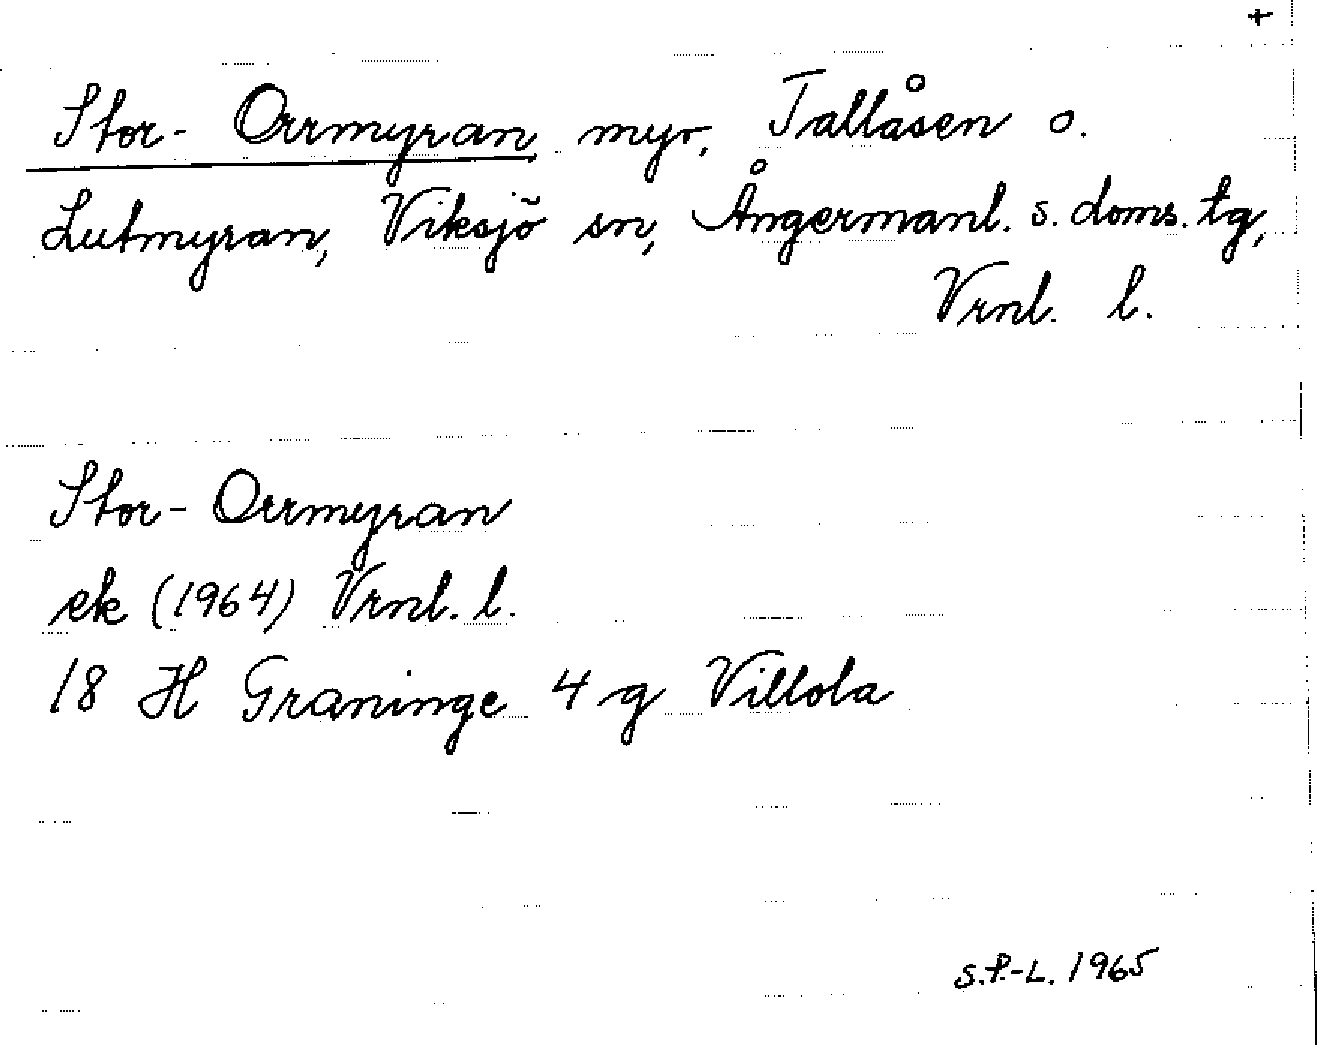 +
Stor-Orrmyran myr, Tallåsen o.
Lutmyran, Viksjö sn, Ångermanl. s. doms. tg,
Vrnl. l.
Stor-Orrmyran
ek (1964) Vrnl. l.
18 H Graninge 4 g Villola
S.P.-L. 1965